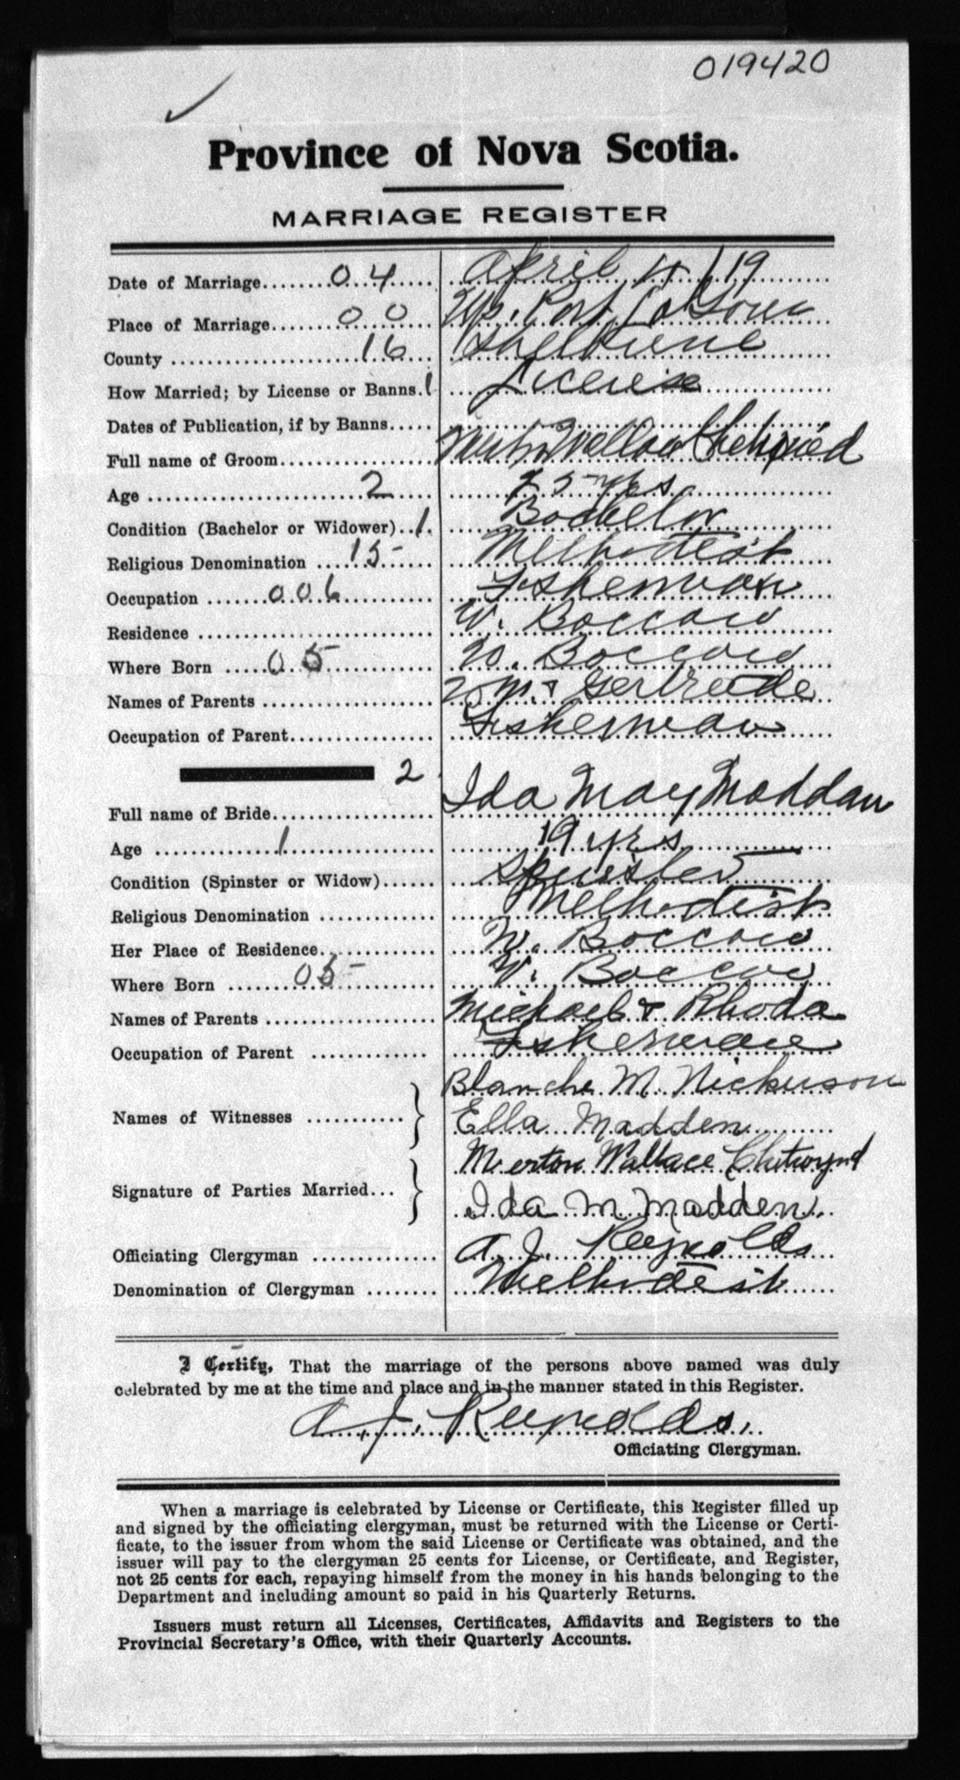 019420
Province of Nova Scotia.
MARRIAGE REGISTER
Date of Marriage 04 April 4/19
Place of Marriage 00 Up. Port La Tour
County 16 Shelburne
How Married; by License or Banns. 1 License
Dates of Publication, if by Banns
Full name of Groom
Age 2 25 yrs
Condition (Bachelor or Widower) 1. Bachelor
Religious Denomination 15 Methodist
Occupation 006 Fisherman
Residence W. Baccaro
Where Born 05 W. Baccaro
Names of Parents Wm. & Gertrude
Occupation of Parent Fisherman
2
Full name of Bride Ida May Madden
Age 1 19 yrs
Condition (Spinster or Widow) Spinster
Religious Denomination Methodist
Her Place of Residence W. Baccaro
Where Born 05 W. Baccaro
Names of Parents Michael & Rhoda
Occupation of Parent Fisherman
Blanche M. Nickerson
Names of Witnesses
Ella Madden
Merton Wallace Chetwynd
Signature of Parties Married
Ida M Madden
Officiating Clergyman A. J. Reynolds
Denomination of Clergyman Methodist
I Certify, That the marriage of the persons above named was duly
celebrated by me at the time and place and in the manner stated in this Register.
A. J. Reynolds.
Officiating Clergyman.
When a marriage is celebrated by License or Certificate, this Register filled up
and signed by the officiating clergyman, must be returned with the License or Certi-
ficate, to the issuer from whom the said License or Certificate was obtained, and the
issuer will pay to the clergyman 25 cents for License, or Certificate, and Register,
not 25 cents for each, repaying himself from the money in his hands belonging to the
Department and including amount so paid in his Quarterly Returns.
Issuers must return all Licenses, Certificates, Affidavits and Registers to the
Provincial Secretary's Office, with their Quarterly Accounts.